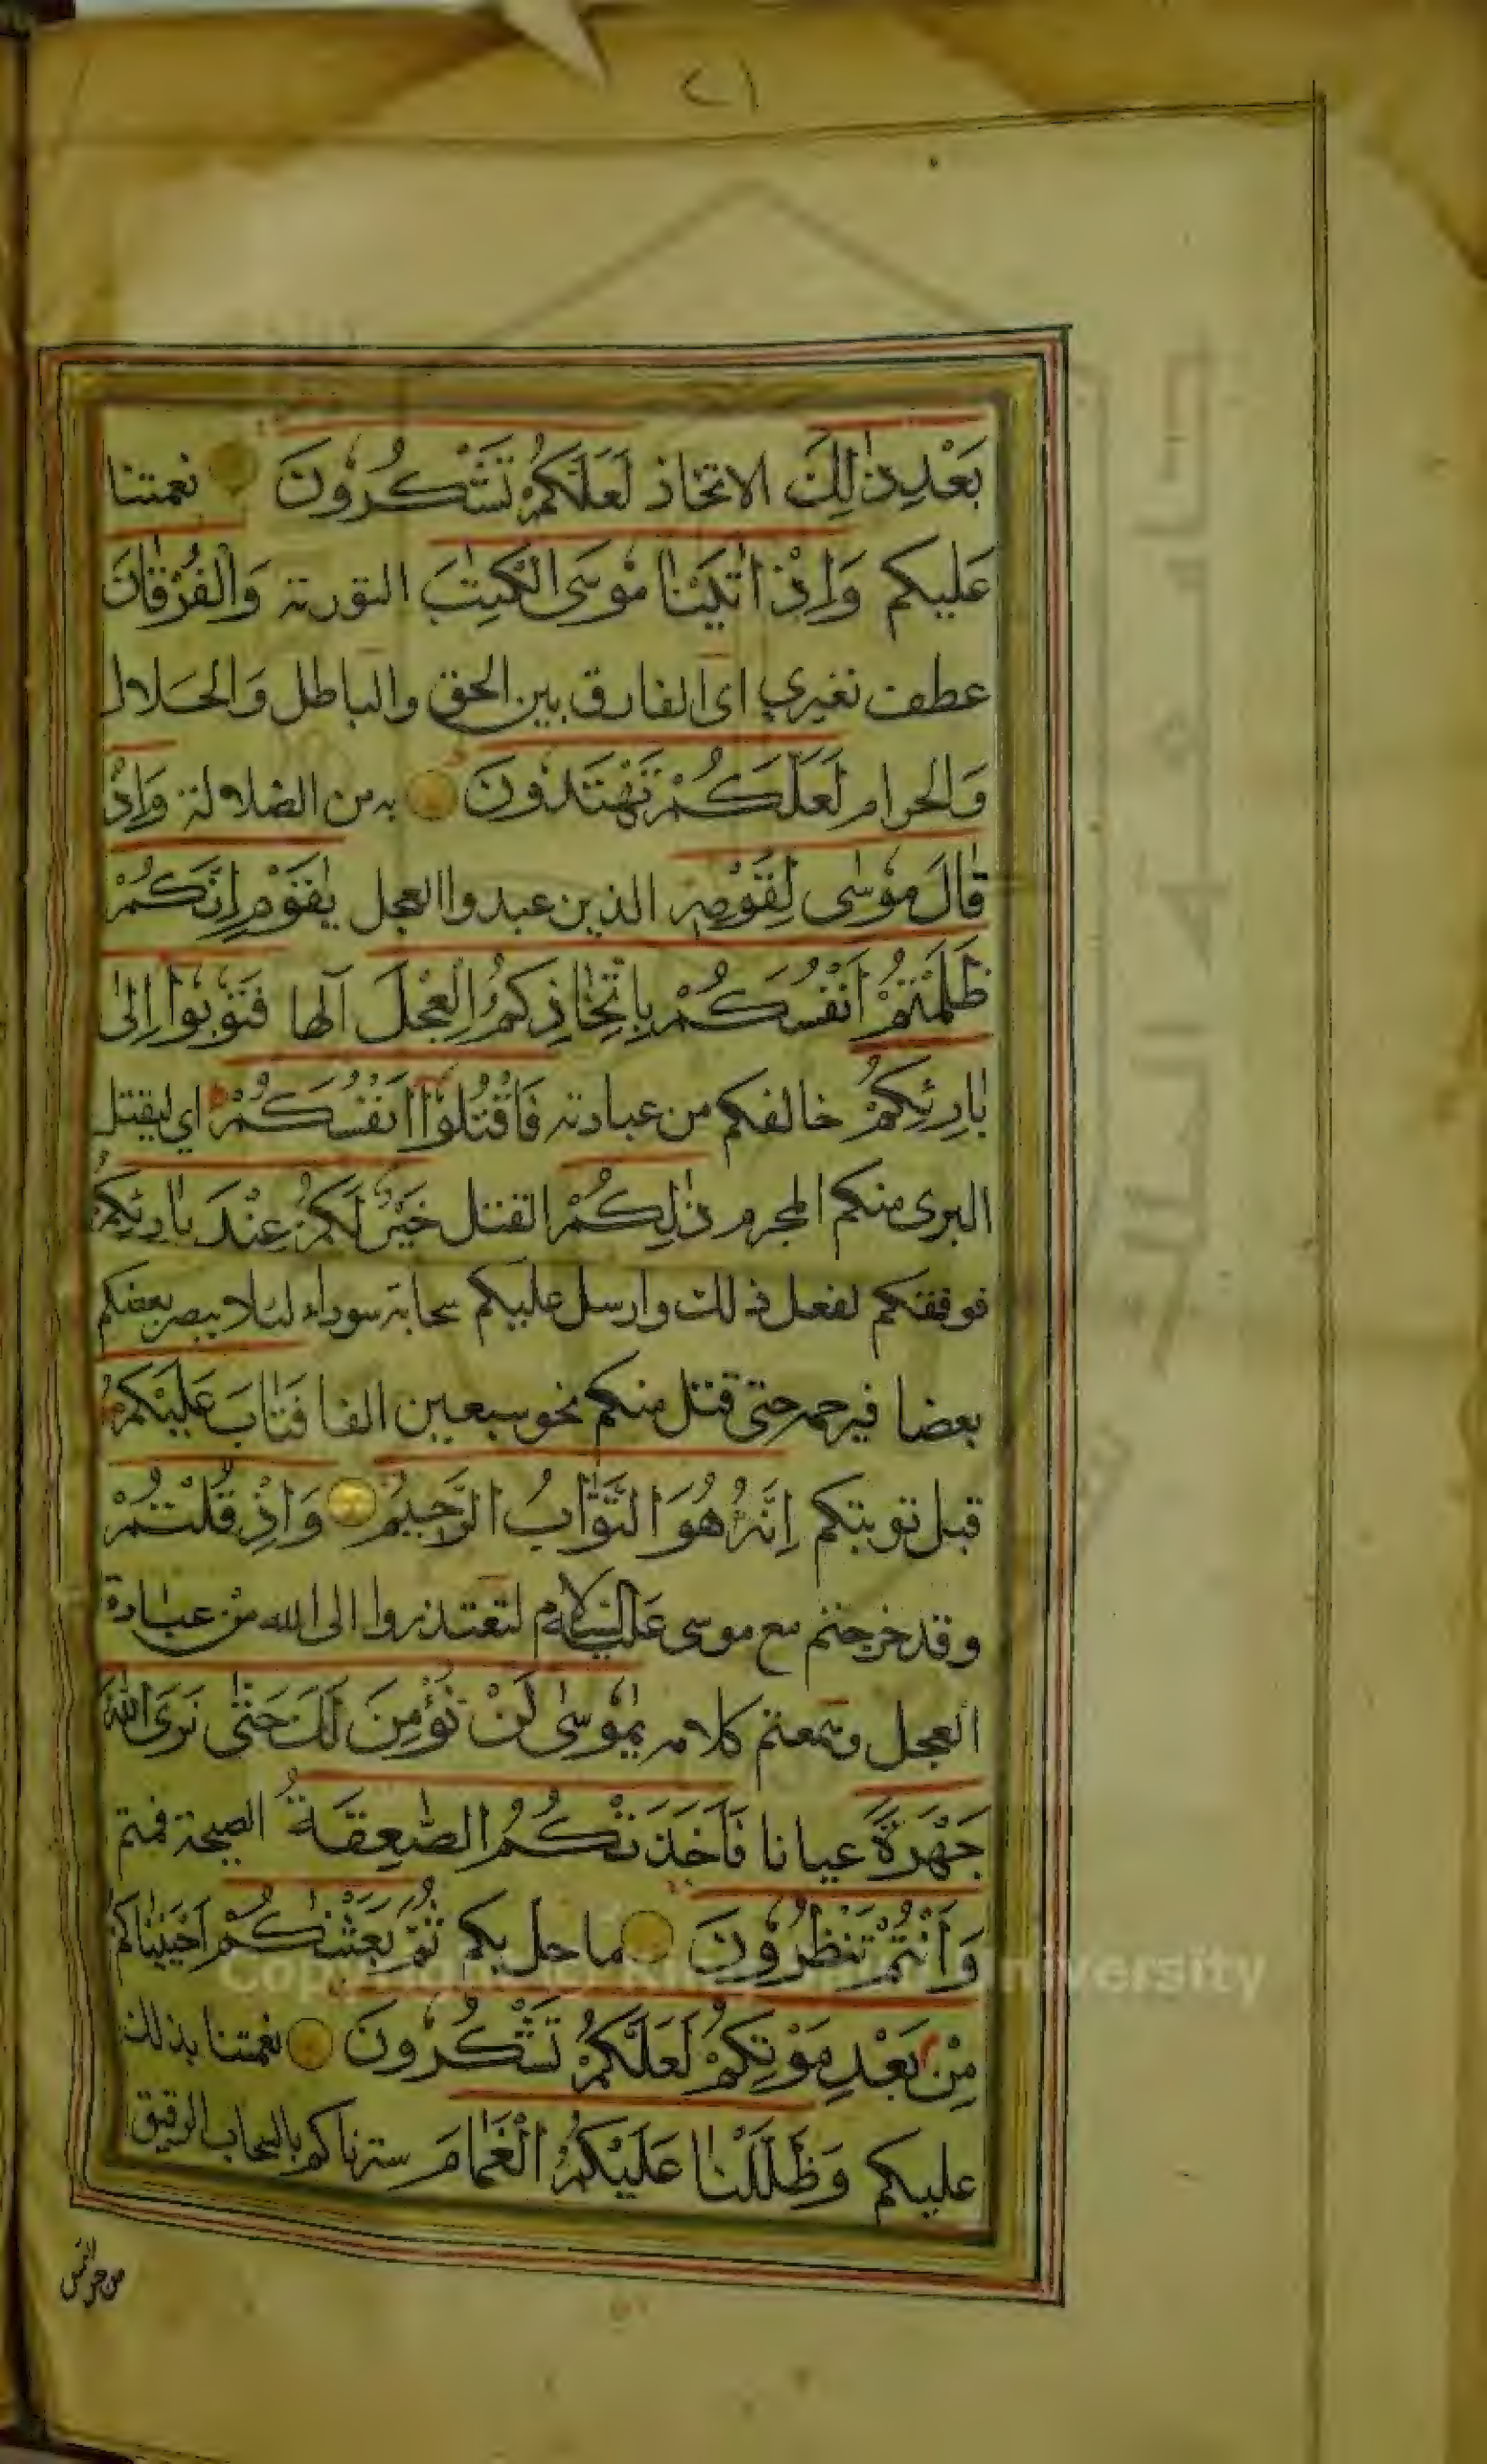 ٢١
بَعْدِ ذٰلِكَ الاتخاذ لَعَلَّكُمْ تَشْكُرُونَ نعمتنا
عليكم وَاِذْ اٰتَيْنَا مُوسَى الْكِتٰبَ التورية وَالْفُرْقَانَ
عطف تفسيري اى الفارق بين الحق والباطل وَالحَلال
وَالحرام لَعَلَّكُمْ تَهْتَدُونَ به من الضلالة وَاِذْ
قَالَ مُوسٰى لِقَوْمِهِ الذين عبدوا العجل يٰقَوْمِ اِنَّكُمْ
ظَلَمْتُمْ اَنْفُسَكُمْ بِاتِّخَاذِكُمُ الْعِجْلَ آلها فَتُوبُوا اِلٰى
بَارِئِكُمْ خالقكم من عبادته فَاقْتُلُوا اَنْفُسَكُمْ اي ليقتل
البرى منكم المجرم ذٰلِكُمْ القتل خَيْرٌ لَكُمْ عِنْدَ بَارِئِكُمْ
فوفقكم لفعل ذلك وارسل عليكم سحابة سوداء لئلا يبصر بعضكم
بعضا فيرحمه حتى قتل منكم نحو سبعين الفا فَتَابَ عَلَيْكُمْ
قبل توبتكم اِنَّهُ هُوَ التَّوَّابُ الرَّحِيمُ وَاِذْ قُلْتُمْ
وقد خرجتم مع موسى عَليه السلام لتعتذروا الى الله من عبادة
العجل وسمعتم كلامه يٰمُوسٰى لَنْ نُؤْمِنَ لَكَ حَتّٰى نَرَى اللهَ
جَهْرَةً عيانا فَاَخَذَتْكُمُ الصّٰعِقَةُ الصيحة فمتم
وَاَنْتُمْ تَنْظُرُونَ ما حل بكم ثُمَّ بَعَثْنٰكُمْ احييناكم
مِنْ بَعْدِ مَوْتِكُمْ لَعَلَّكُمْ تَشْكُرُونَ نعمتنا بذلك
عليكم وَظَلَّلْنَا عَلَيْكُمُ الْغَمَامَ سترناكم بالسحاب الرقيق
من حر الشمس